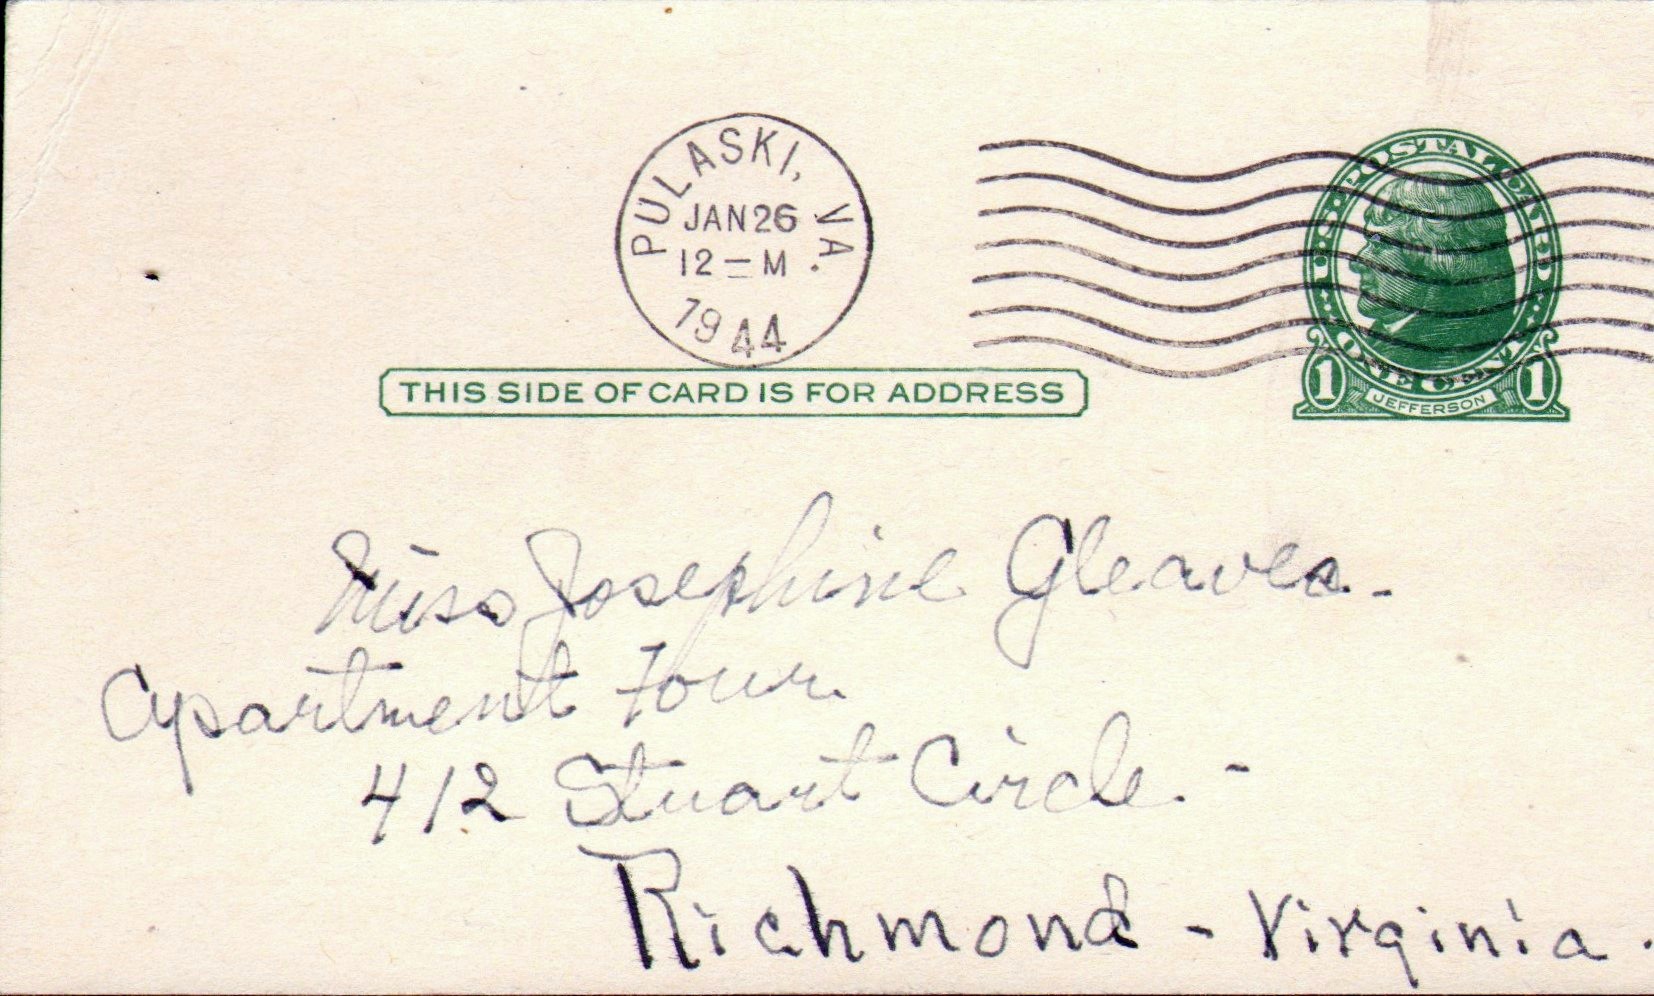 PULASKI, VA.
JAN 26
12 — M
1944
U.S. POSTAL CARD
ONE CENT
1 JEFFERSON 1
THIS SIDE OF CARD IS FOR ADDRESS
Miss Josephine Gleaves -
Apartment Four.
412 Stuart Circle. -
Richmond - Virginia.